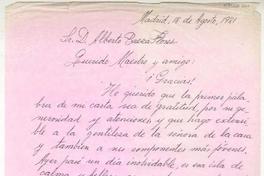 Madrid, 18 de Agosto, 1981
Sr. D. Alberto Baeza Flores
Querido Maestro y amigo:
¡Gracias!
He querido que la primera pala-
bra de mi carta sea de gratitud, por su ge-
nerosidad y atenciones, y que hago extensi-
ble a la gentileza de la señora de la casa
y también a sus componentes más jóvenes.
Ayer pasé un día inolvidable, en esa isla de
calma y